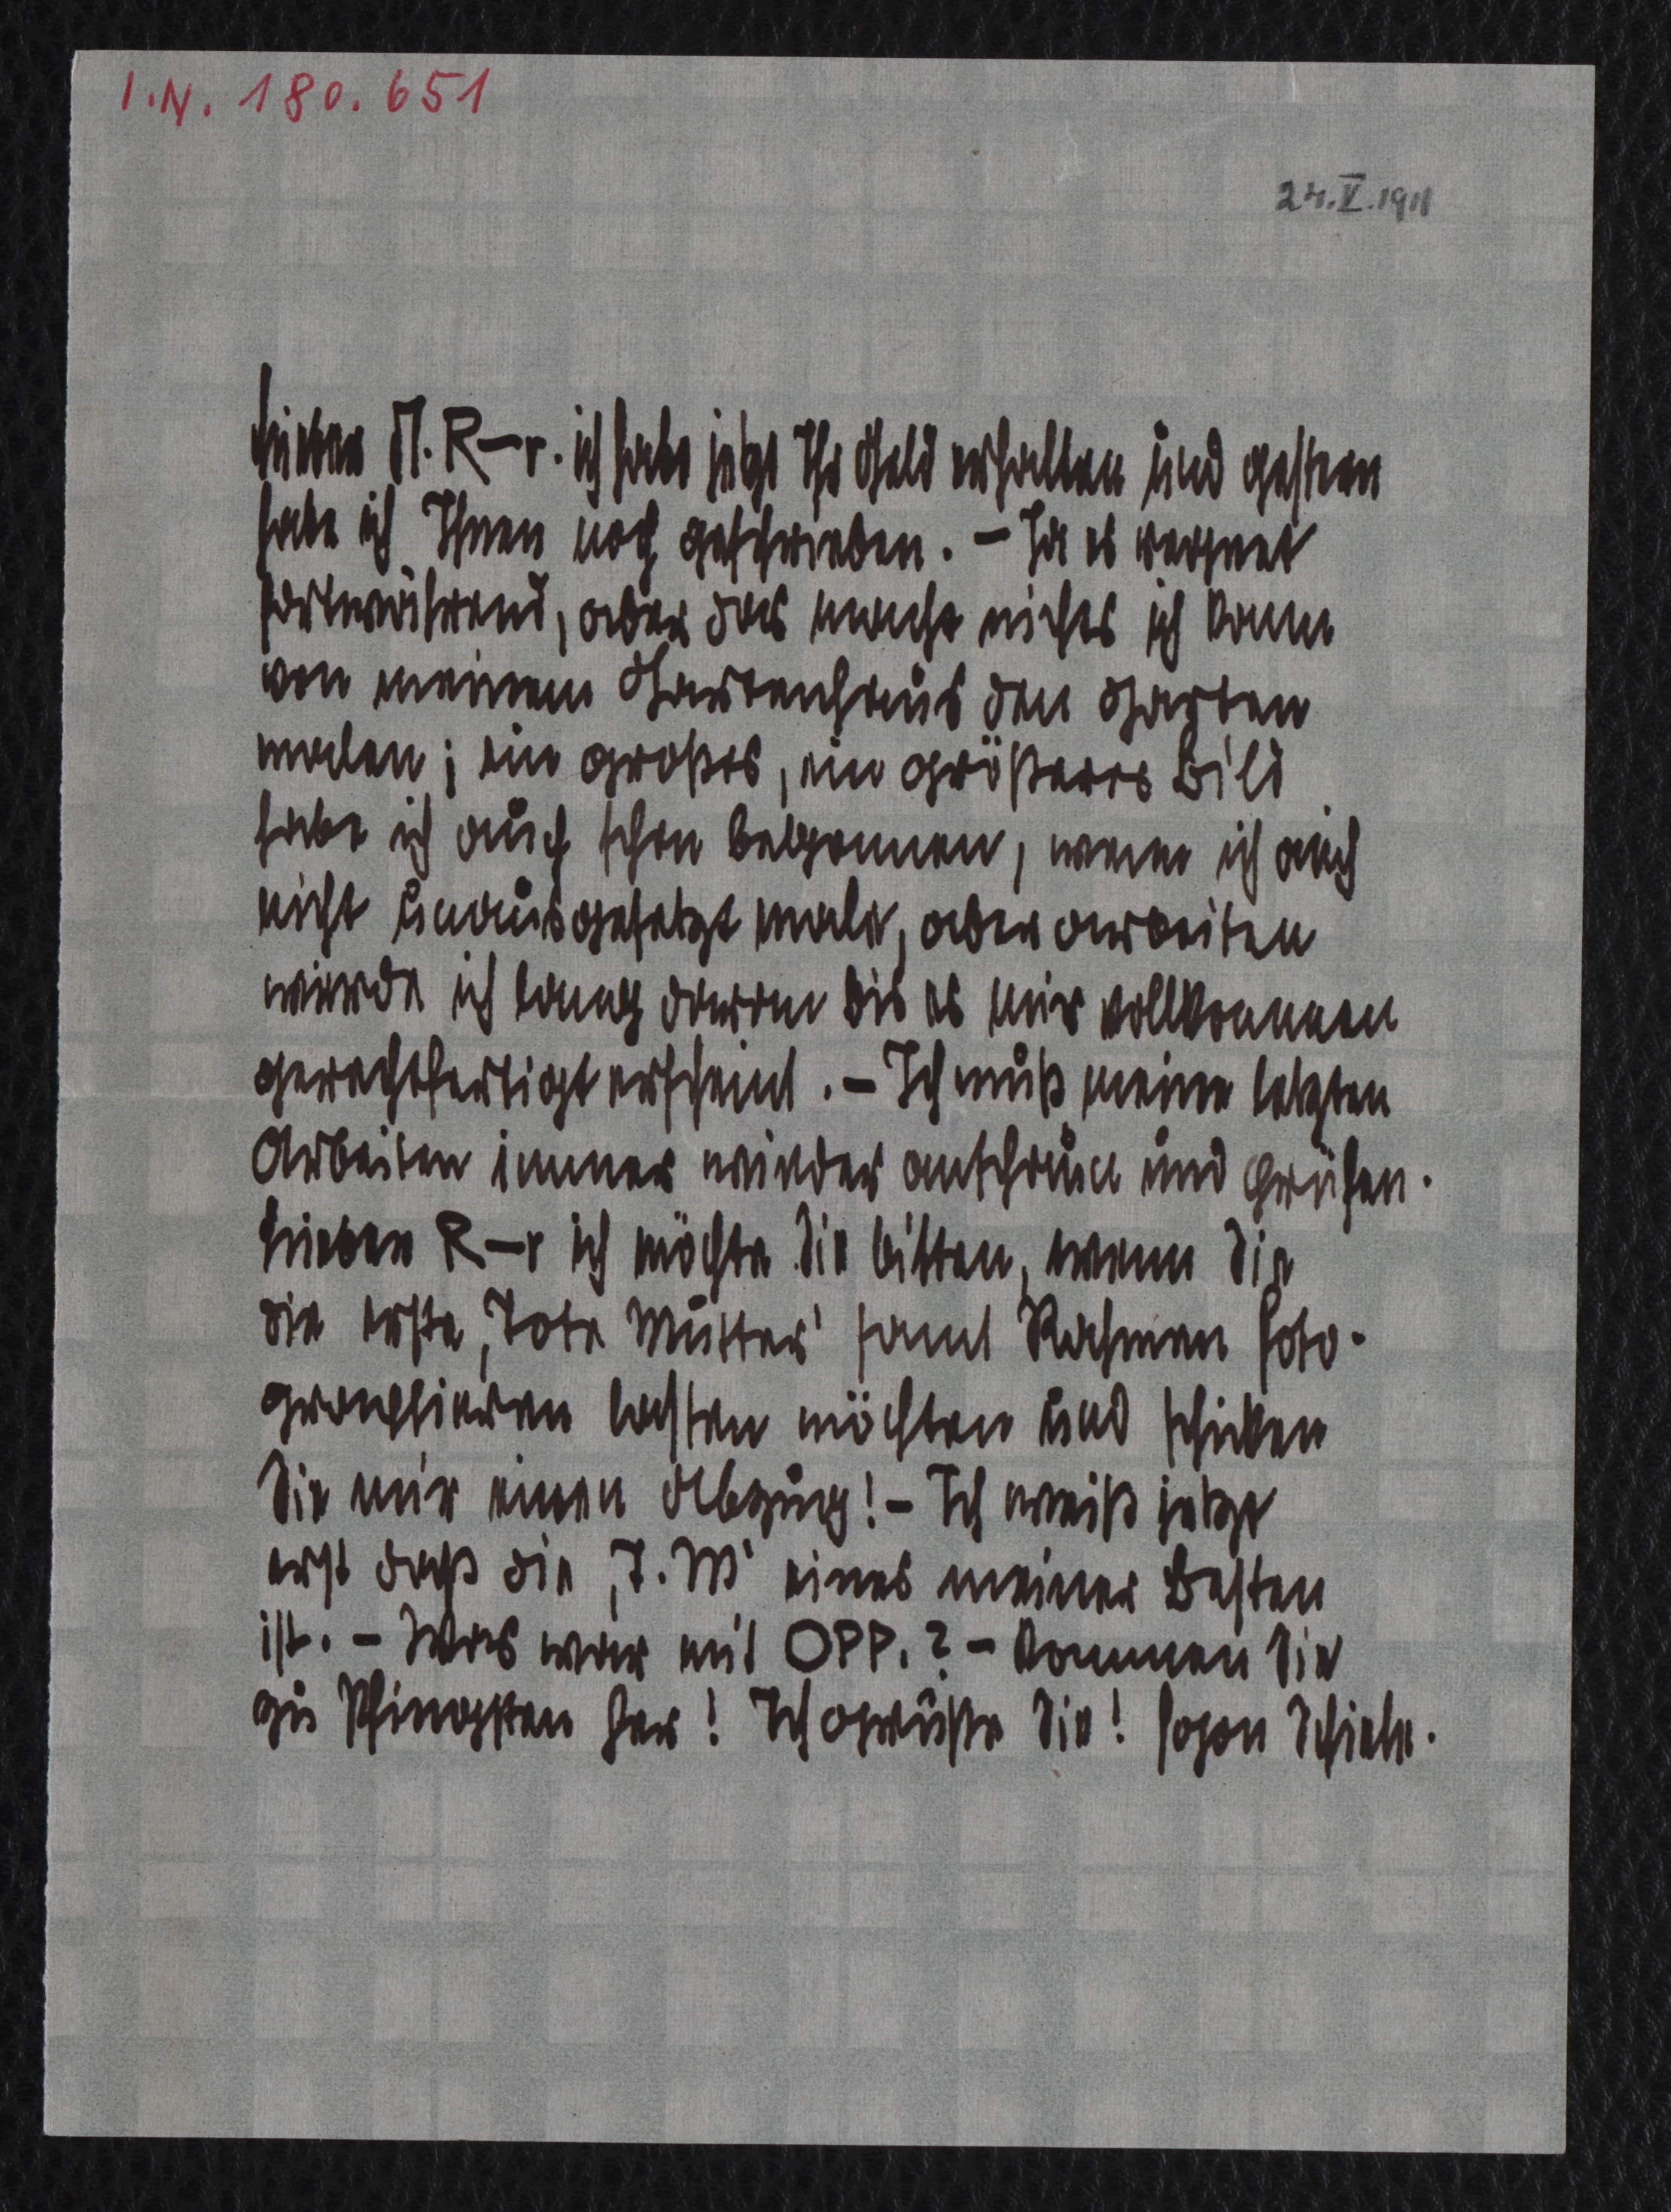 I.N. 180.651
24.V.1911
Lieber A. R–r. ich habe jetzt Ihr Geld erhalten und gestern
habe ich Ihnen noch geschrieben. – Ja es regnet
fortwährend, aber das macht nichts ich kann
von meinem Gartenhaus den Garten
malen; ein großes, ein größeres Bild
habe ich auch schon begonnen, wenn ich auch
nicht unausgesetzt male, aber arbeiten
werde ich lang daran bis es mir vollkommen
gerechtfertigt erscheint. – Ich muß meine letzten
Arbeiten immer wieder anschaun und prüfen.
Lieber R–r ich möchte Sie bitten, wenn Sie
die erste ‚Tote Mutter‘ samt Rahmen foto-
grafieren lassen möchten und schicken
Sie mir einen Abzug! – Ich weiß jetzt
erst daß die ‚T. M‘ eines meiner Besten
ist. – Was war mit OPP.? – Kommen Sie
zu Pfingsten her! Ich grüße Sie! Egon Schiele.